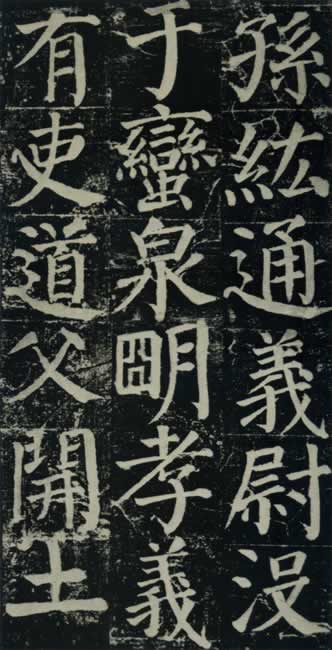 孫紘通義尉没
于蠻泉朙孝義
有吏道父開土